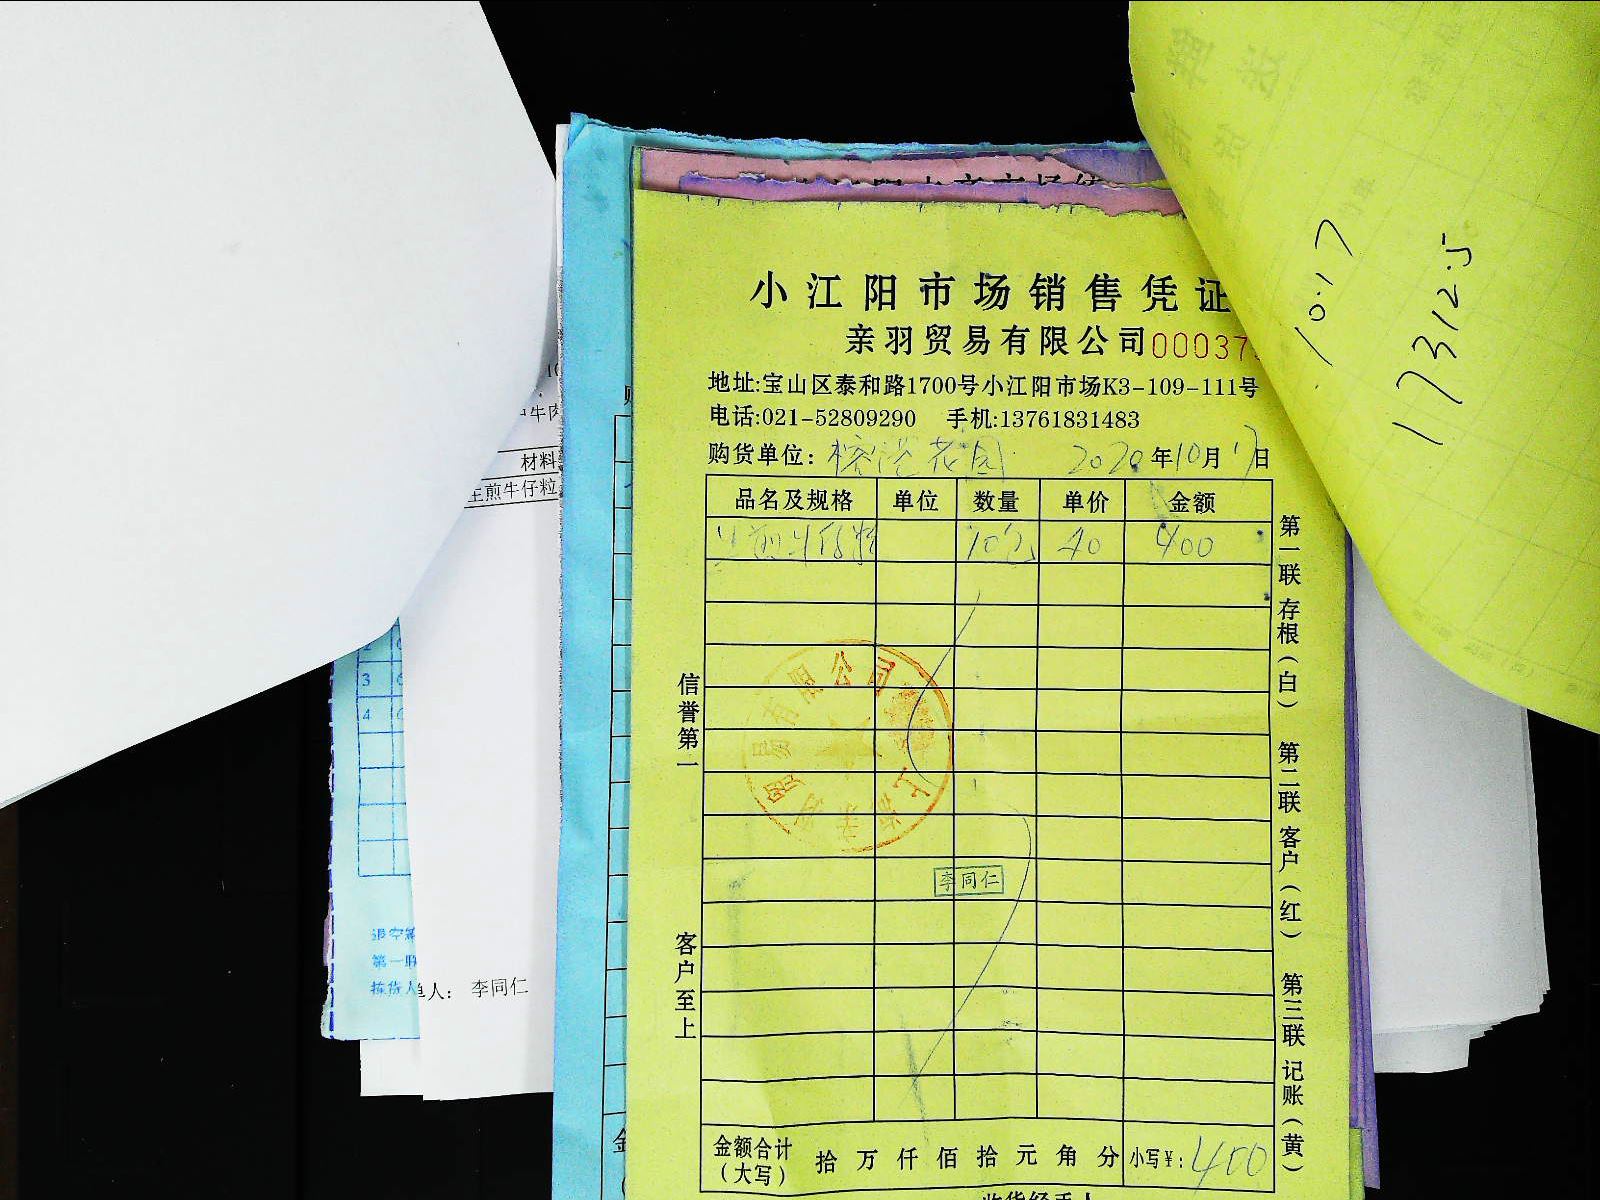 小江阳市场销售凭证
亲羽贸易有限公司 00037
地址:宝山区泰和路1700号小江阳市场K3-109-111号
电话:021-52809290 手机:13761831483
购货单位: 花园 2020年10月17日
品名及规格 单位 数量 单价 金额
生煎牛仔粒 10包 40 400
信誉第一
客户至上
第一联 存根(白) 第二联 客户(红) 第三联 记账(黄)
上海亲羽贸易有限公司
李同仁
金额合计(大写) 拾 万 仟 佰 拾 元 角 分 小写¥: 400
收货经手人
10.17
17312.5
牛肉
材料
生煎牛仔粒
3
4
退空
第一联
拣货人
单人: 李同仁